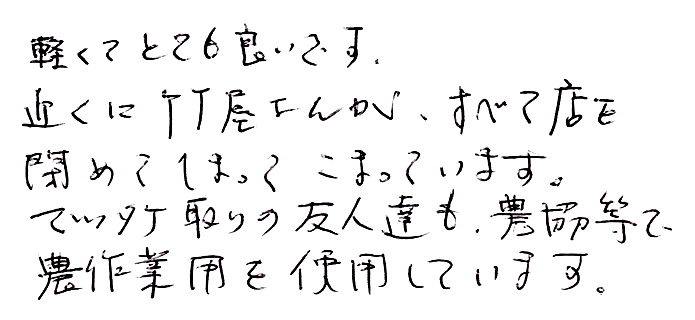 軽くてとても良いです.
近くに竹屋さんが、すべて店を
閉めてしまってこまっています。
でツケ取りの友人達も、農協等で
農作業用を使用しています。